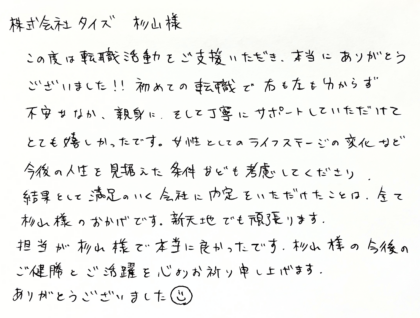 株式会社タイズ 杉山様
この度は転職活動をご支援いただき、本当にありがとう
ございました!! 初めての転職で右も左も分からず
不安ななか、親身に、そして丁寧にサポートしていただけて
とても嬉しかったです。女性としてのライフステージの変化など
今後の人生を見据えた条件なども考慮してくださり、
結果として満足のいく会社に内定をいただけたことは、全て
杉山様のおかげです。新天地でも頑張ります。
担当が杉山様で本当に良かったです。杉山様の今後の
ご健勝とご活躍を心よりお祈り申し上げます。
ありがとうございました☺